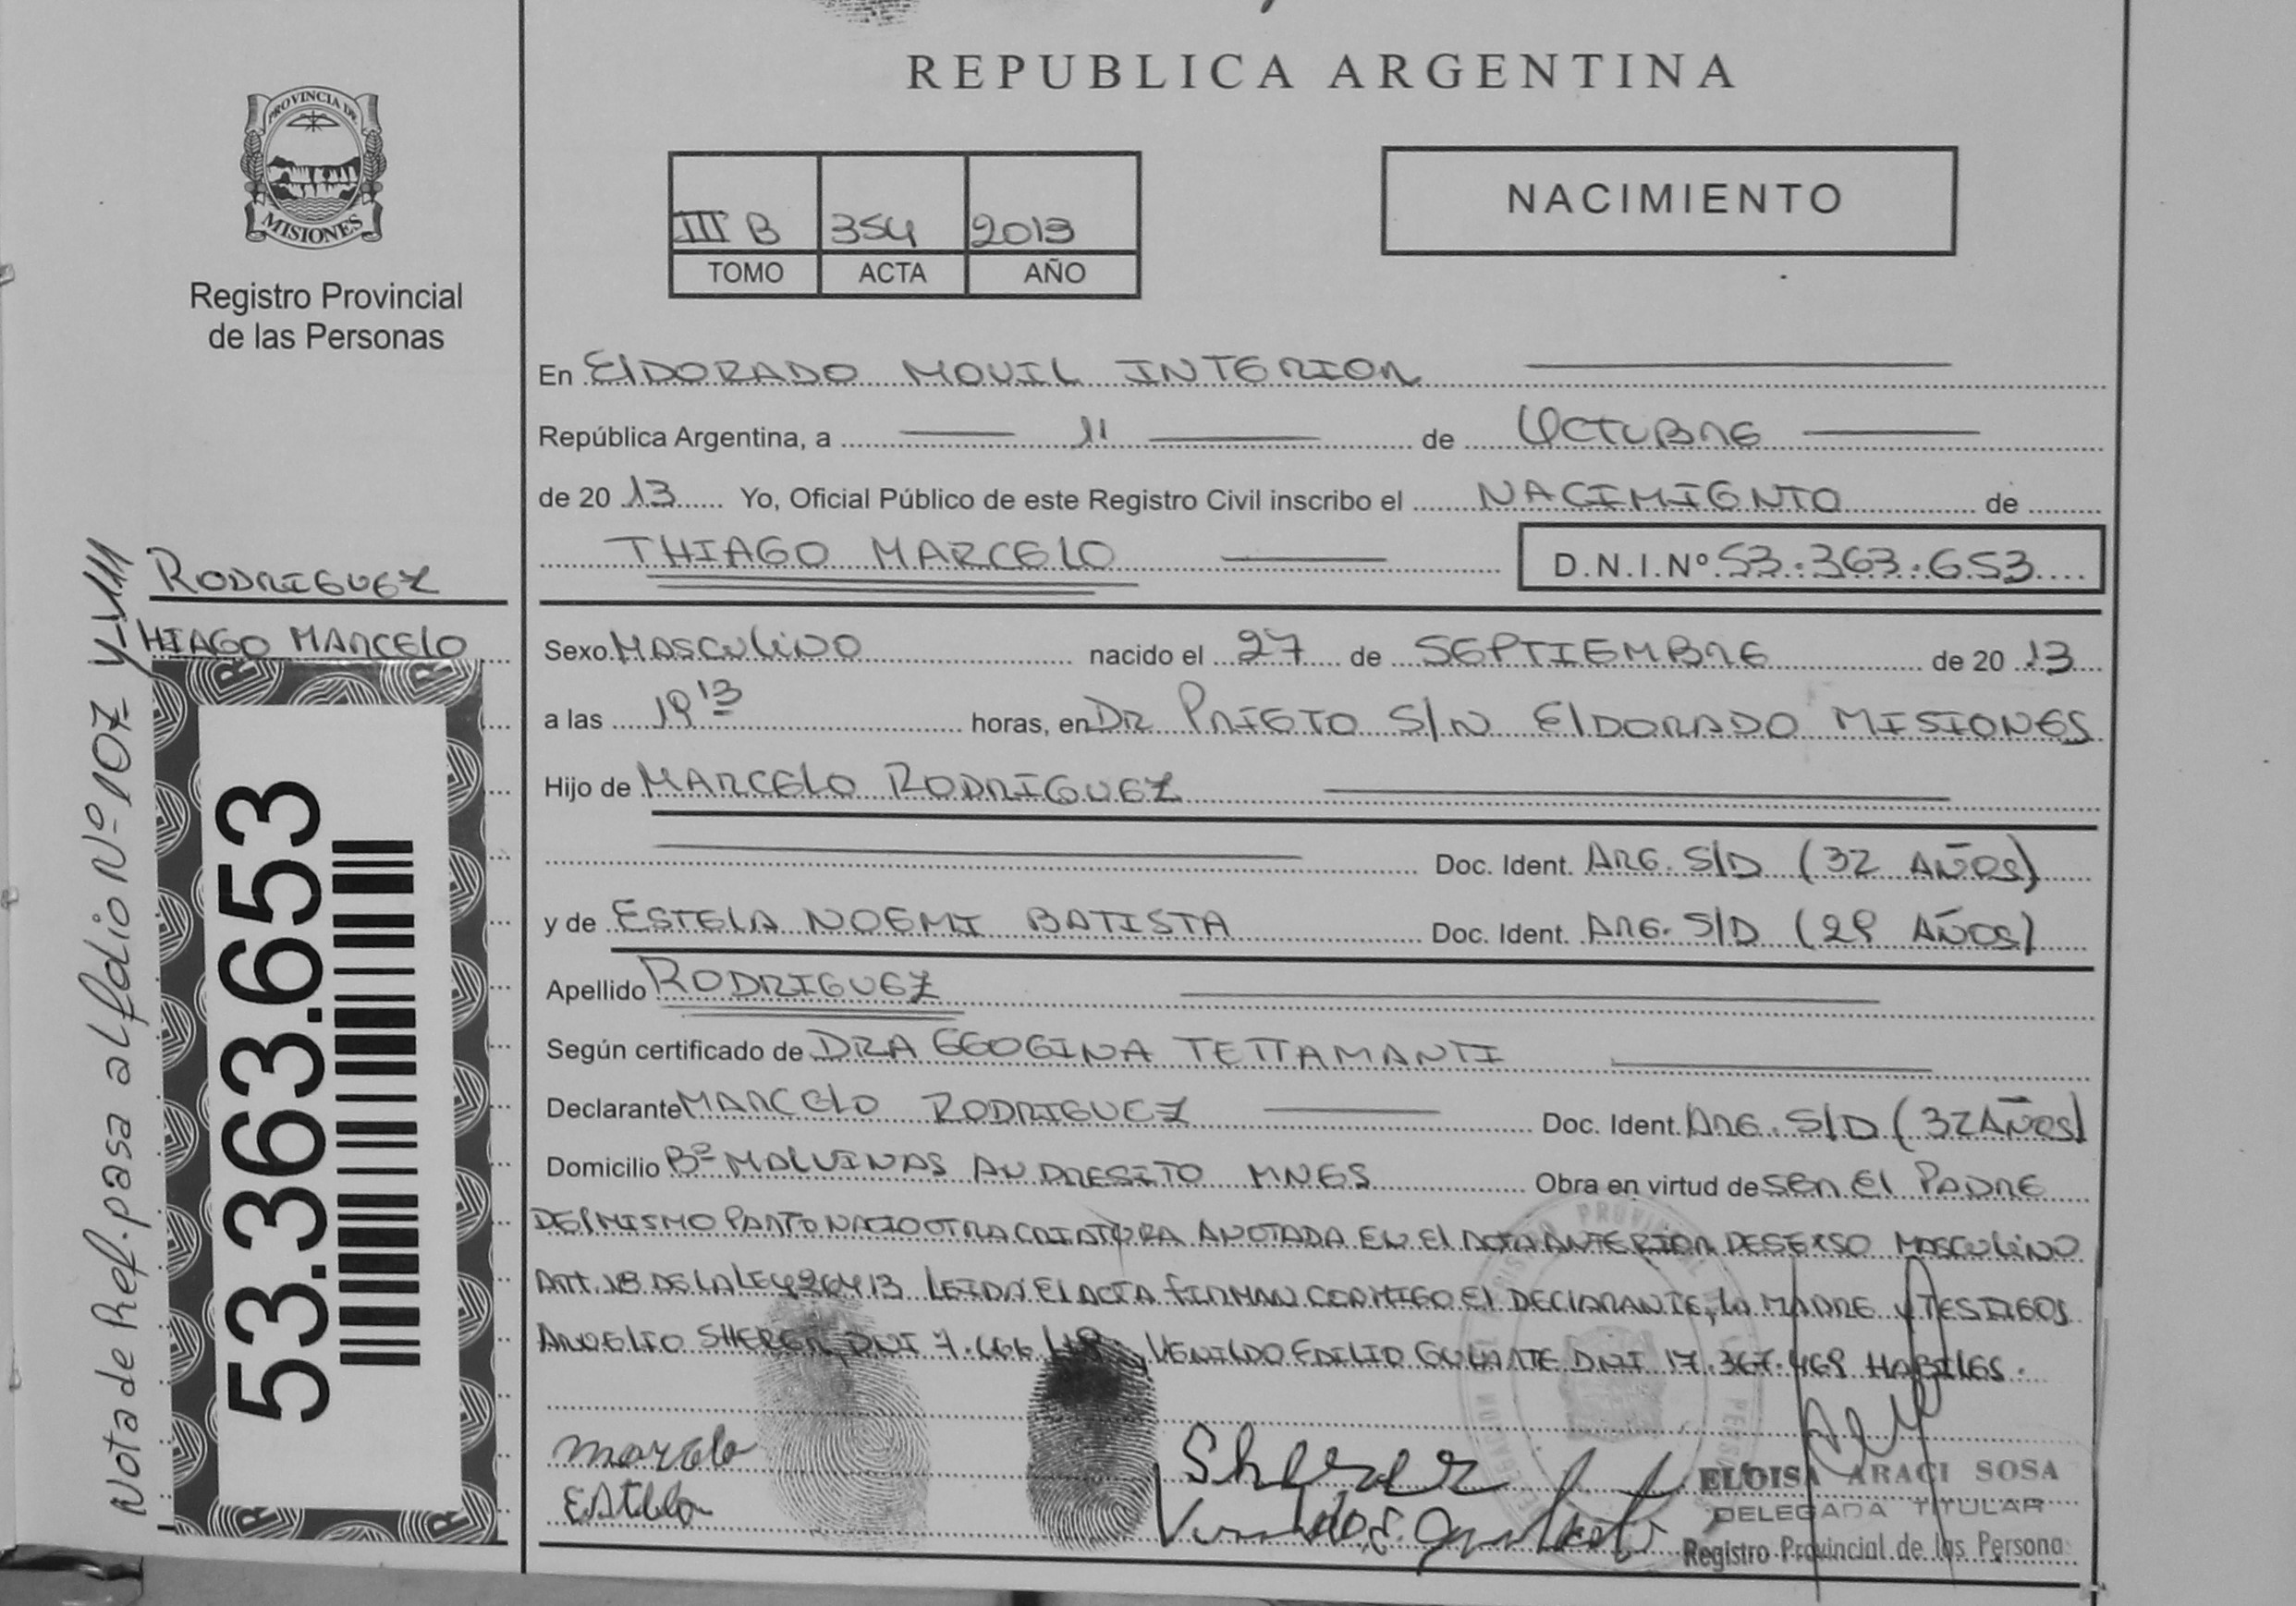 REPUBLICA ARGENTINA
PROVINCIA DE
MISIONES
Registro Provincial
de las Personas
III B 354 2013
TOMO ACTA AÑO
NACIMIENTO
En ElDORADO MOVIL INTERIOR
República Argentina, a 11 de OCTUBRE
de 20 13 Yo, Oficial Público de este Registro Civil inscribo el NACIMIENTO de
THIAGO MARCELO D.N.I.Nº 53.363.653
RODRIGUEZ
THIAGO MARCELO
53.363.653
Nota de Ref. pasa al folio Nº 107
Sexo MASCULINO nacido el 27 de SEPTIEMBRE de 20 13
a las 19 13 horas, en DR PRIETO S/N ElDORADO MISIONES
Hijo de MARCELO RODRIGUEZ
Doc. Ident. ARG. S/D (32 AÑOS)
y de ESTELA NOEMI BATISTA Doc. Ident. ARG. S/D (29 AÑOS)
Apellido RODRIGUEZ
Según certificado de DRA GEOGINA TETTAMANTI
Declarante MARCELO RODRIGUEZ Doc. Ident. ARG. S/D (32 AÑOS)
Domicilio Bº MALVINAS ANDRESITO MNES Obra en virtud de SER El PADRE
DEL MISMO PARTO NACIO OTRA CRIATURA ANOTADA EN El ACTA ANTERIOR DE SEXSO MASCULINO
ART. 18 DE LA LEY 26413 LEIDA El ACTA FIRMAN CONMIGO El DECLARANTE, LA MADRE Y TESTIGOS
SHERER, DNI VENILDO EDILIO DNI 17.367.469 HABILES.
Marcelo
Estela
Sherer
ELOISA ARACI SOSA
DELEGADA TITULAR
Registro Provincial de las Persona